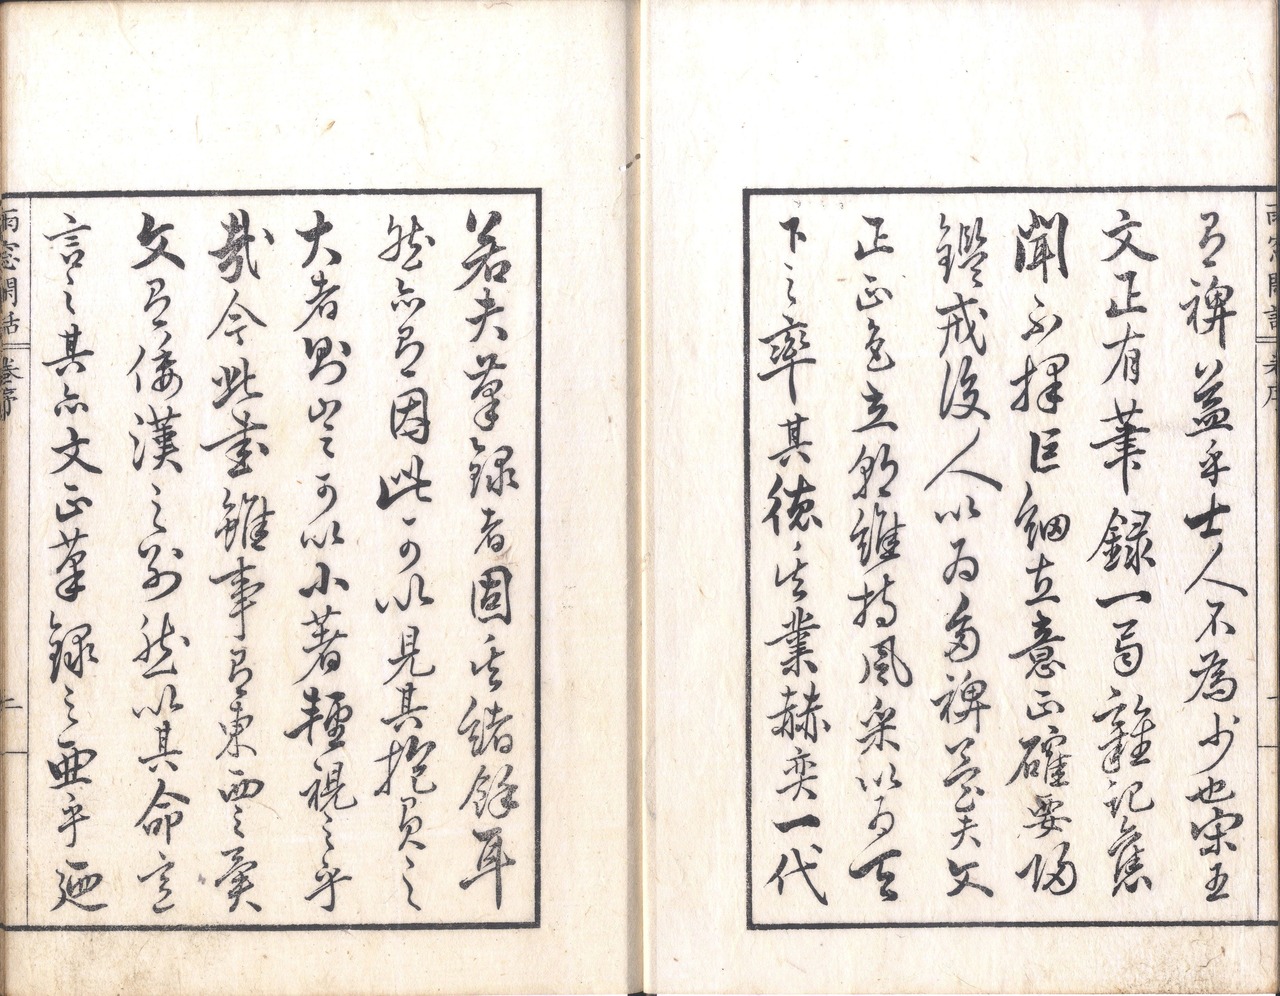 有裨益乎士人不為少也宋王
文正有筆録一局雜記舊
聞不擇巨細立意正確要归
鑑戒後人以為多裨益夫文
正正色立朝維持風采以為天
下之率其徳其業赫奕一代
若夫筆録者固其緒餘耳
然亦有因此可以見其抱負之
大者則豈可以小著輕視之乎
哉今此書雖事有東西之異
文有倭漢之別然以其命意
言之其亦文正筆録之亜乎廼
雨窓閒話 巻序 二